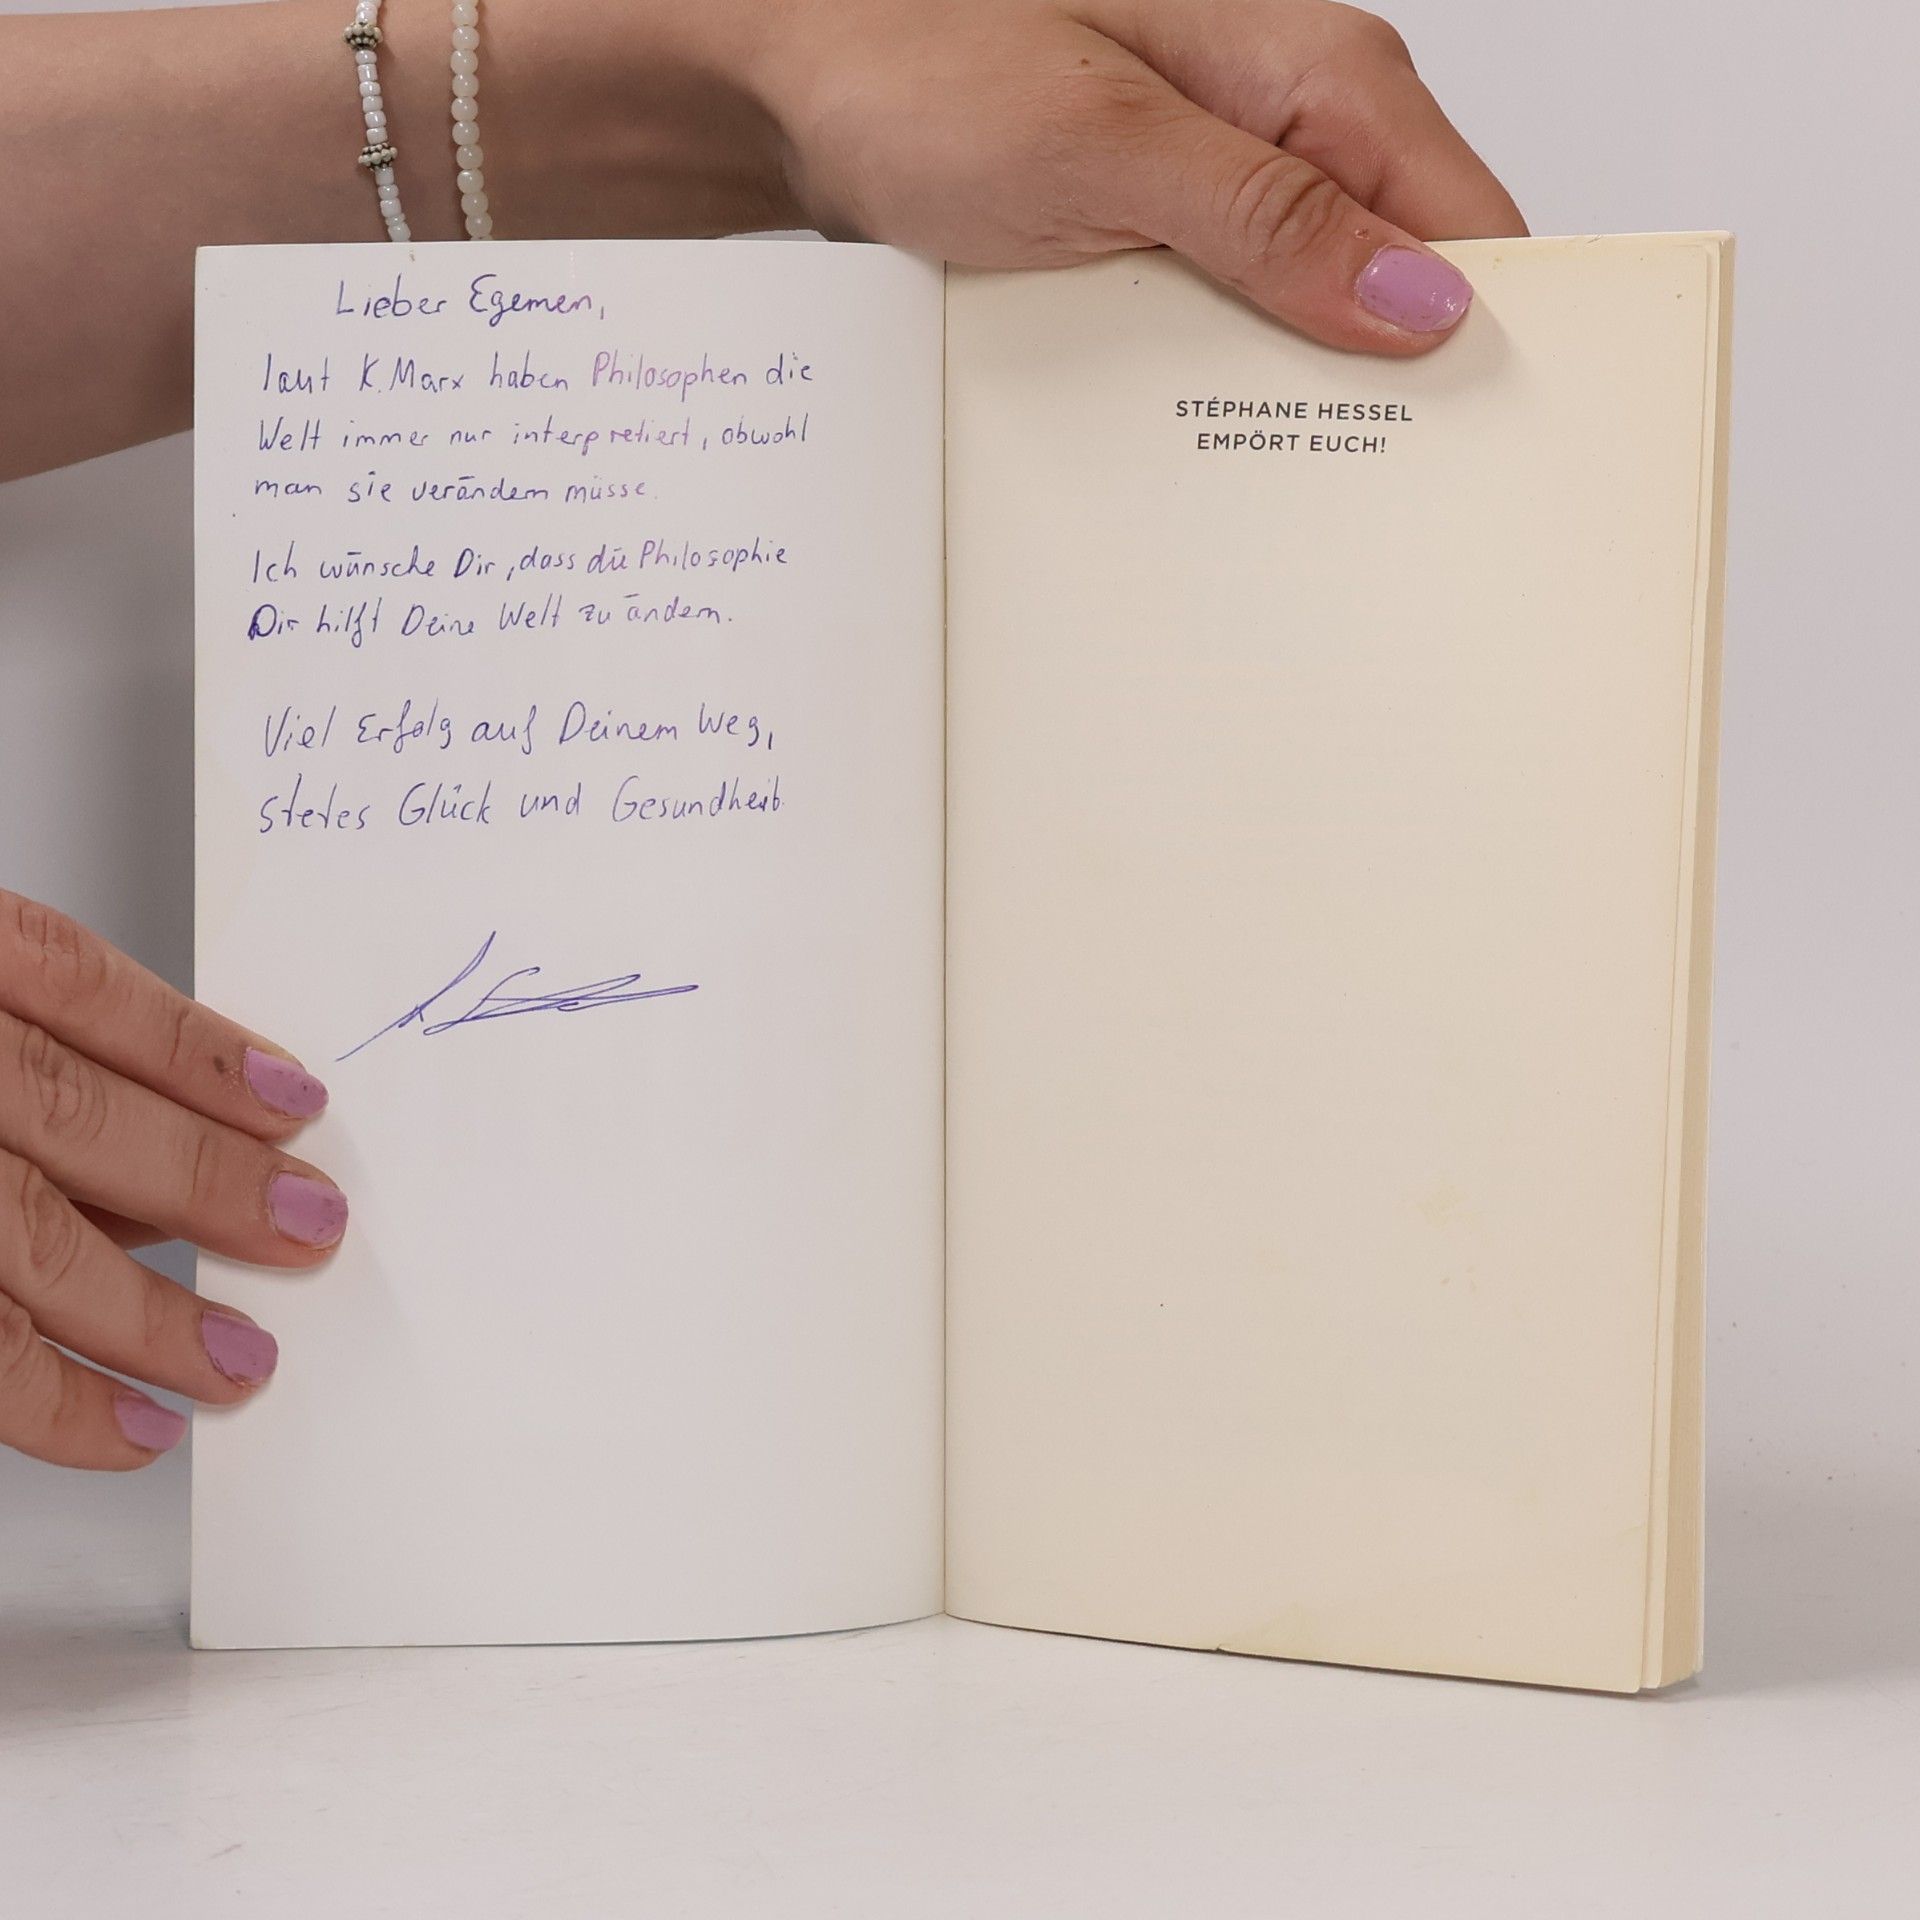 Lieber Egemen,
laut K. Marx haben Philosophen die
Welt immer nur interpretiert, obwohl
man sie verändern müsse.
Ich wünsche Dir, dass die Philosophie
Dir hilft Deine Welt zu ändern.
Viel Erfolg auf Deinem Weg,
stetes Glück und Gesundheit.
STÉPHANE HESSEL
EMPÖRT EUCH!